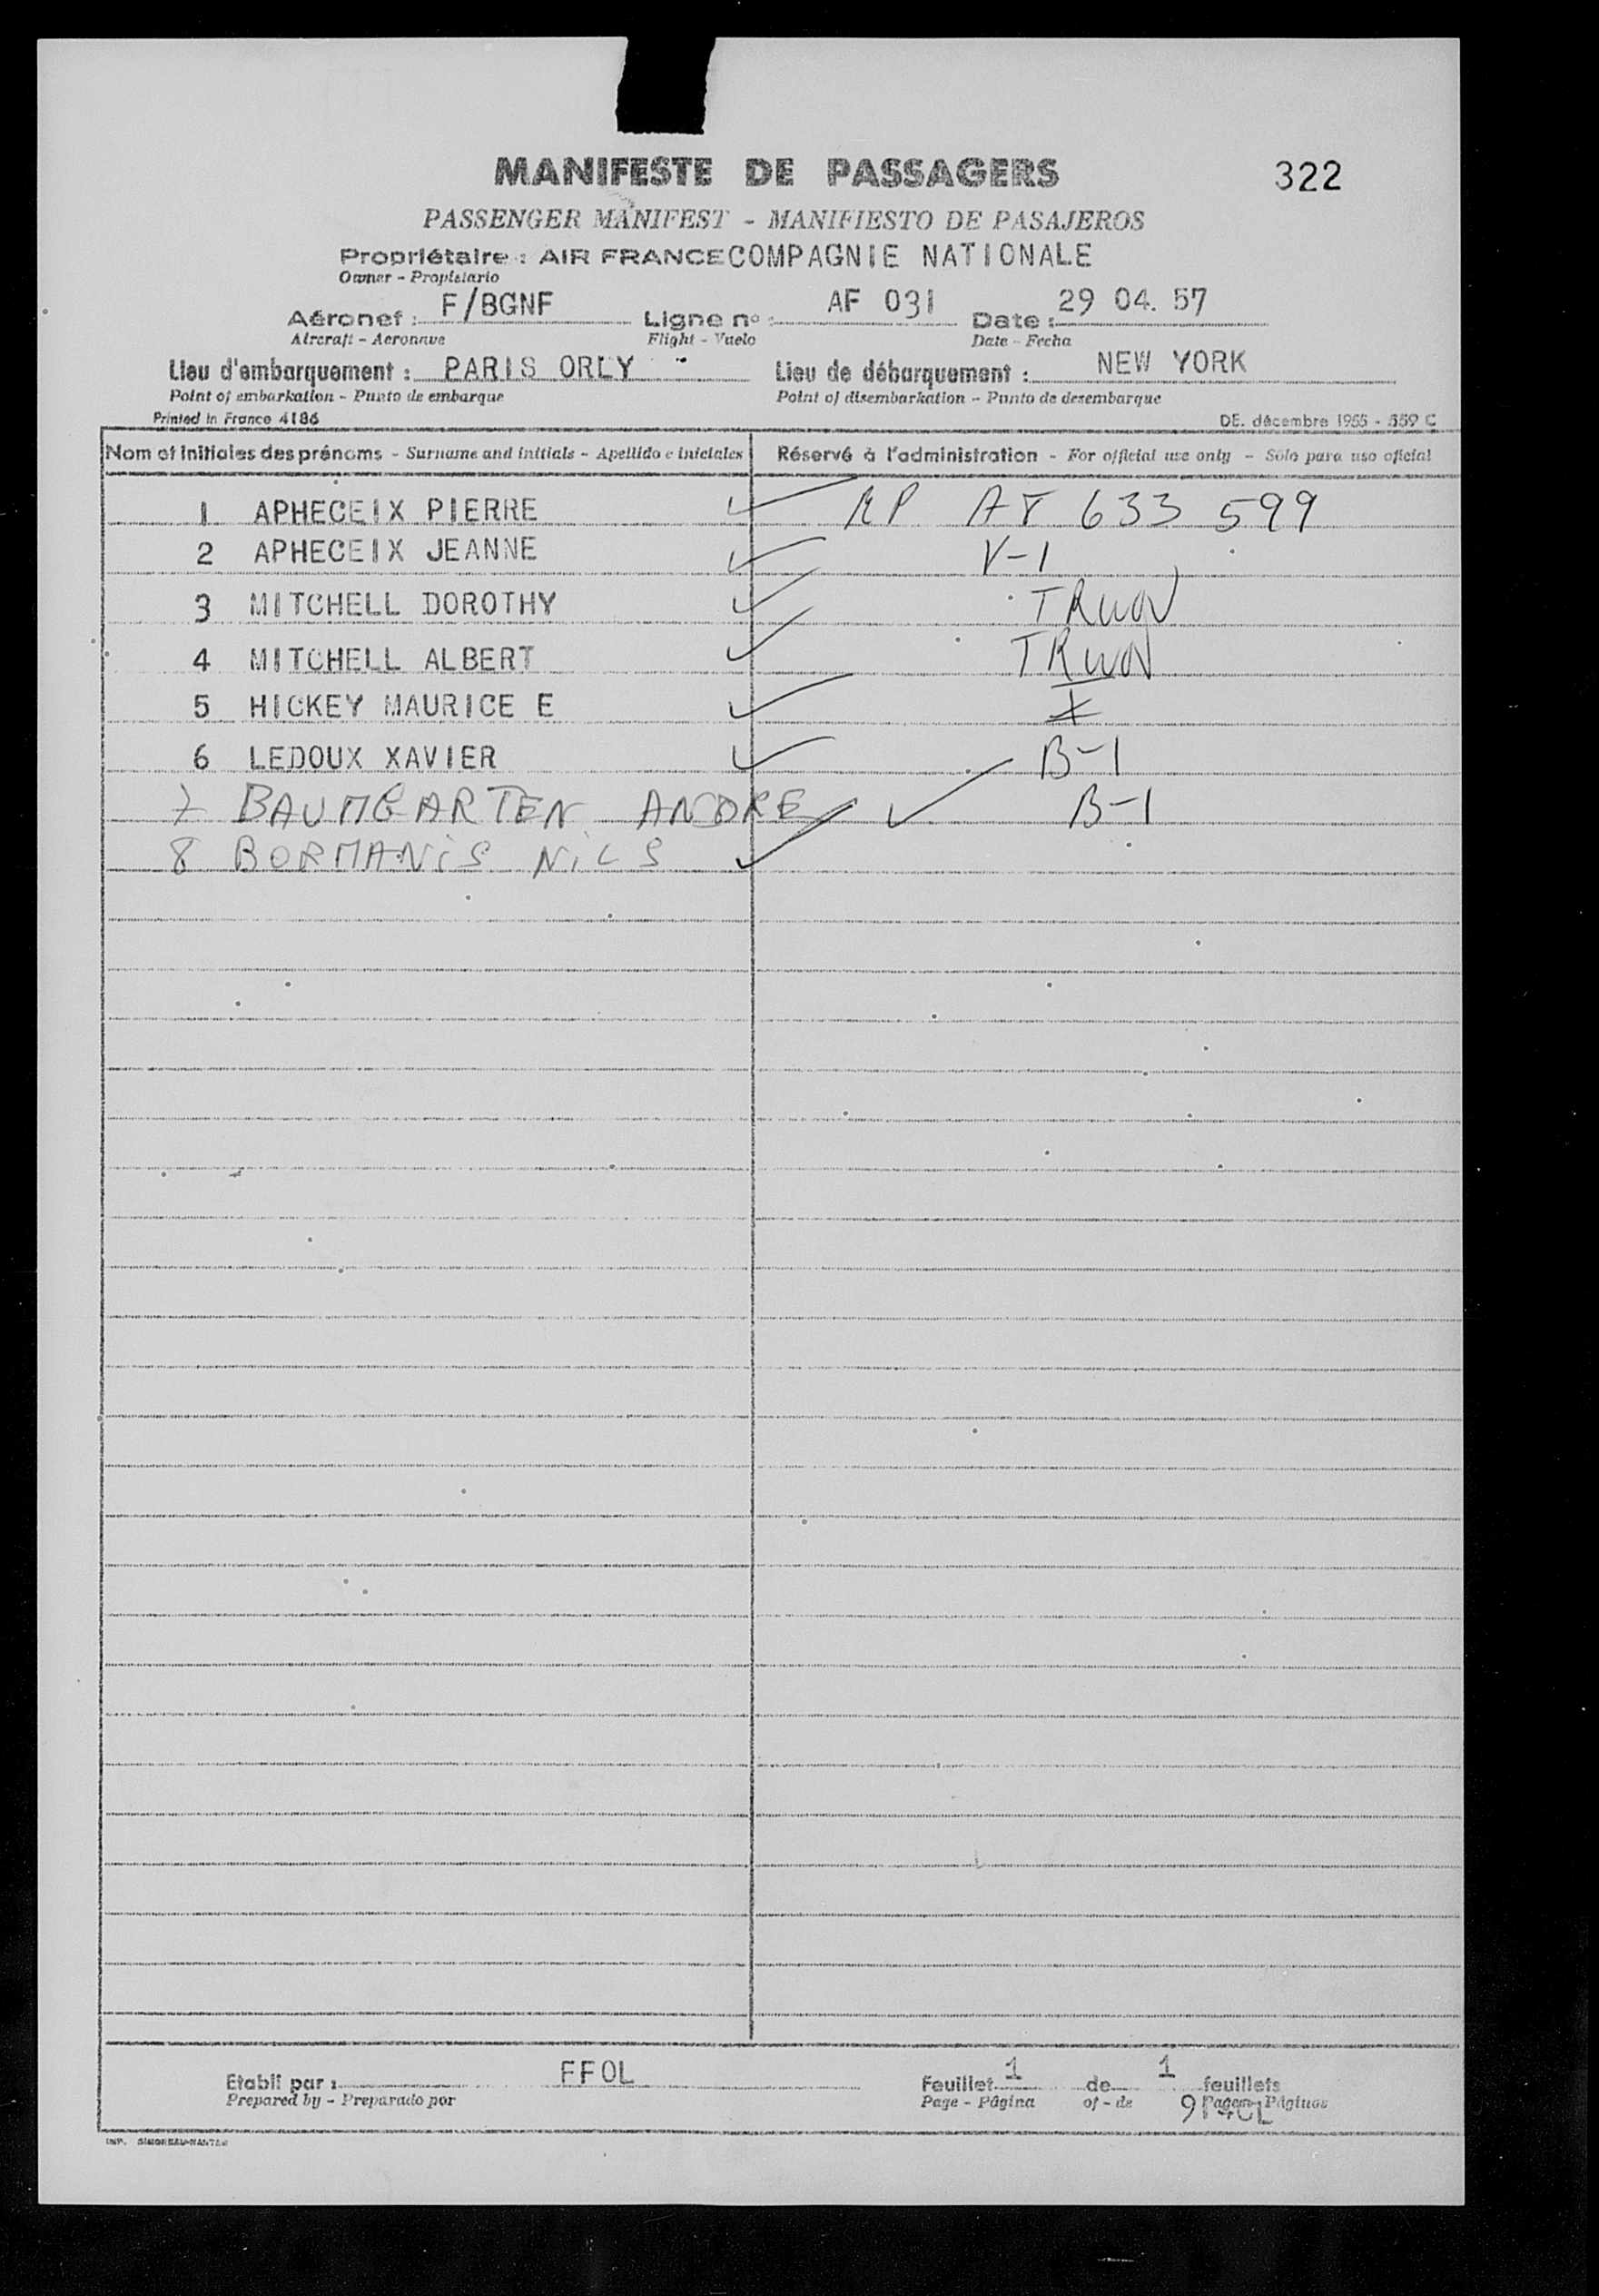 MANIFESTE DE PASSAGERS 322
PASSENGER MANIFEST - MANIFIESTO DE PASAJEROS
Propriétaire : AIR FRANCE COMPAGNIE NATIONALE
Owner - Propietario
Aéronef : F/BGNF Ligne nº : AF 031 Date : 29 04. 57
Aircraft - Aeronave Flight - Vuelo Date - Fecha
Lieu d'embarquement : PARIS ORLY Lieu de débarquement : NEW YORK
Point of embarkation - Punto de embarque Point of disembarkation - Punto de desembarque
Printed in France 4186 DE. décembre 1955 - 559 C
Nom et initiales des prénoms - Surname and initials - Apellido e iniciales Réservé à l'administration - For official use only - Sólo para uso oficial
1 APHECEIX PIERRE 633 599
2 APHECEIX JEANNE V-1
3 MITCHELL DOROTHY TRWOV
4 MITCHELL ALBERT TRWOV
5 HICKEY MAURICE E
6 LEDOUX XAVIER B-1
7 BAUMGARTEN ANDRE B-1
8 BORMANIS NILS
Etabli par : FFOL Feuillet 1 de 1 feuillets
Prepared by - Preparado por Page - Página of - de Pages - Páginas
IMP. SIMONEAU-NANTES